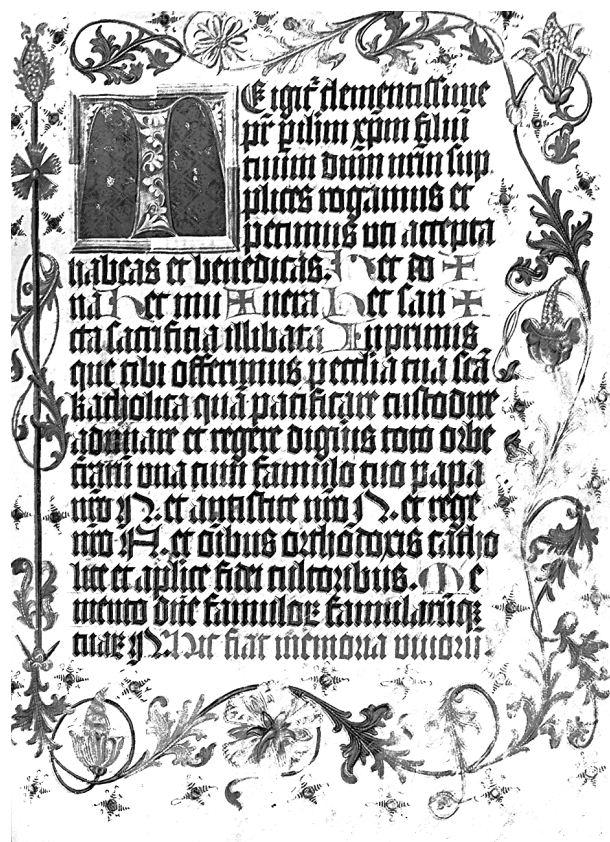 TE igit᷑ clementissime
pr̄ p ih̄m xp̄m filiū
tuum dn̄m nrm̄ sup
plices rogamus et
petimus uti accepta
habeas et benedicas. Hec do ✠
na Hec mu ✠ nera Hec san ✠
cta sacrificia illibata Inprimis
que tibi offerimus ꝑ ecclsiā tua scā
katholica quā pacificare custodire
adunare et regere digñis toto orbe
traꝝ una cum famulo tuo papa
nr̄o N. et antistite nr̄o N. et rege
nr̄o N. et oībus orthodoxis catho
lice et aplice fidei cultoribus. Me
mento dn̄e famuloꝝ famularūqꝫ
tuaꝝ N. Hic fiat memoria vivorū.